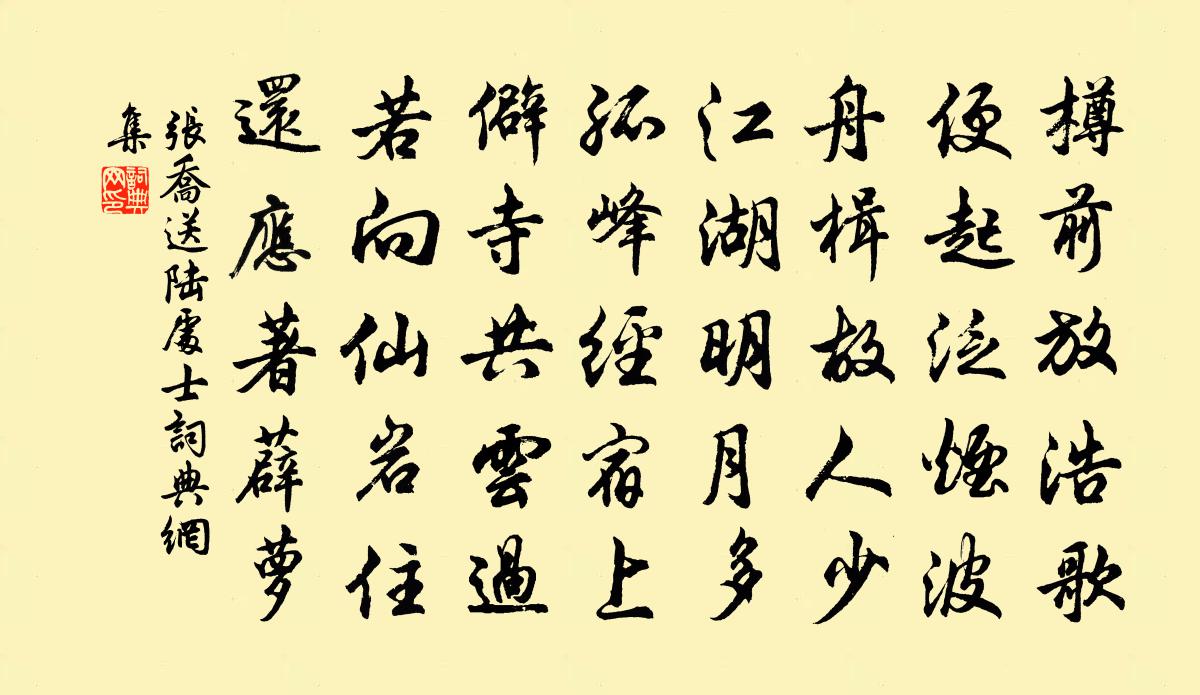 樽前放浩歌
便起泛煙波
舟楫故人少
江湖明月多
孤峰經宿上
僻寺共雲過
若向仙岩住
還應著薜萝
張喬送陸處士詞典網
集
詞典
网印